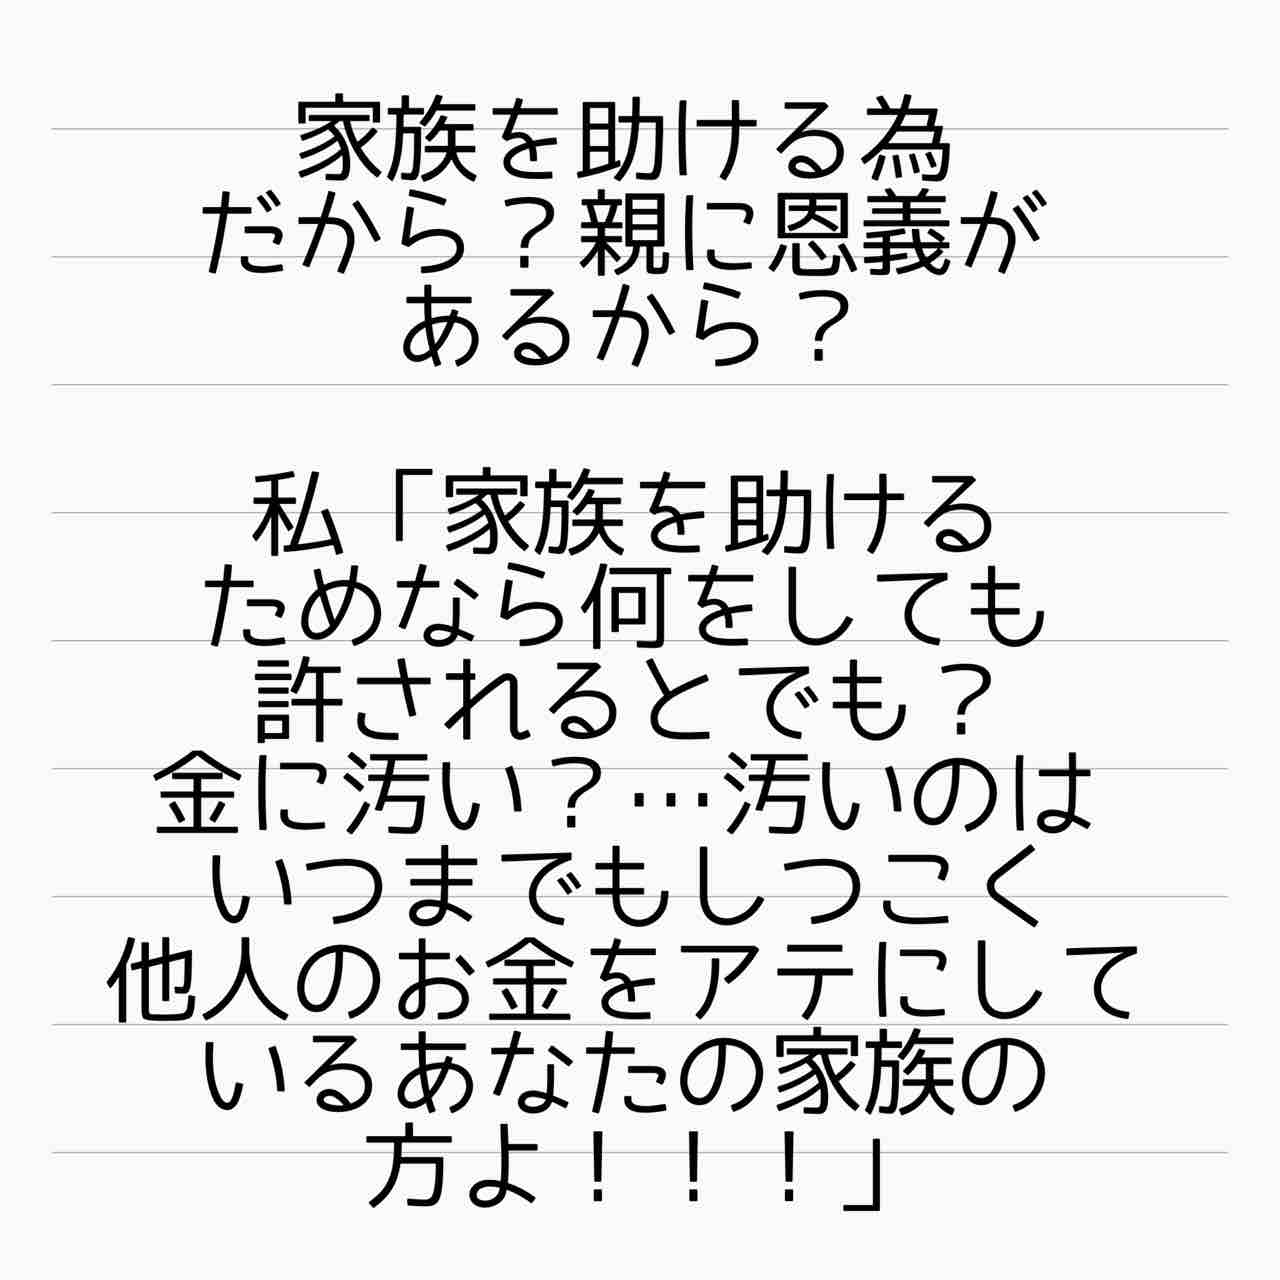 家族を助ける為
だから？親に恩義が
あるから？
私「家族を助ける
ためなら何をしても
許されるとでも？
金に汚い？…汚いのは
いつまでもしつこく
他人のお金をアテにして
いるあなたの家族の
方よ！！！」